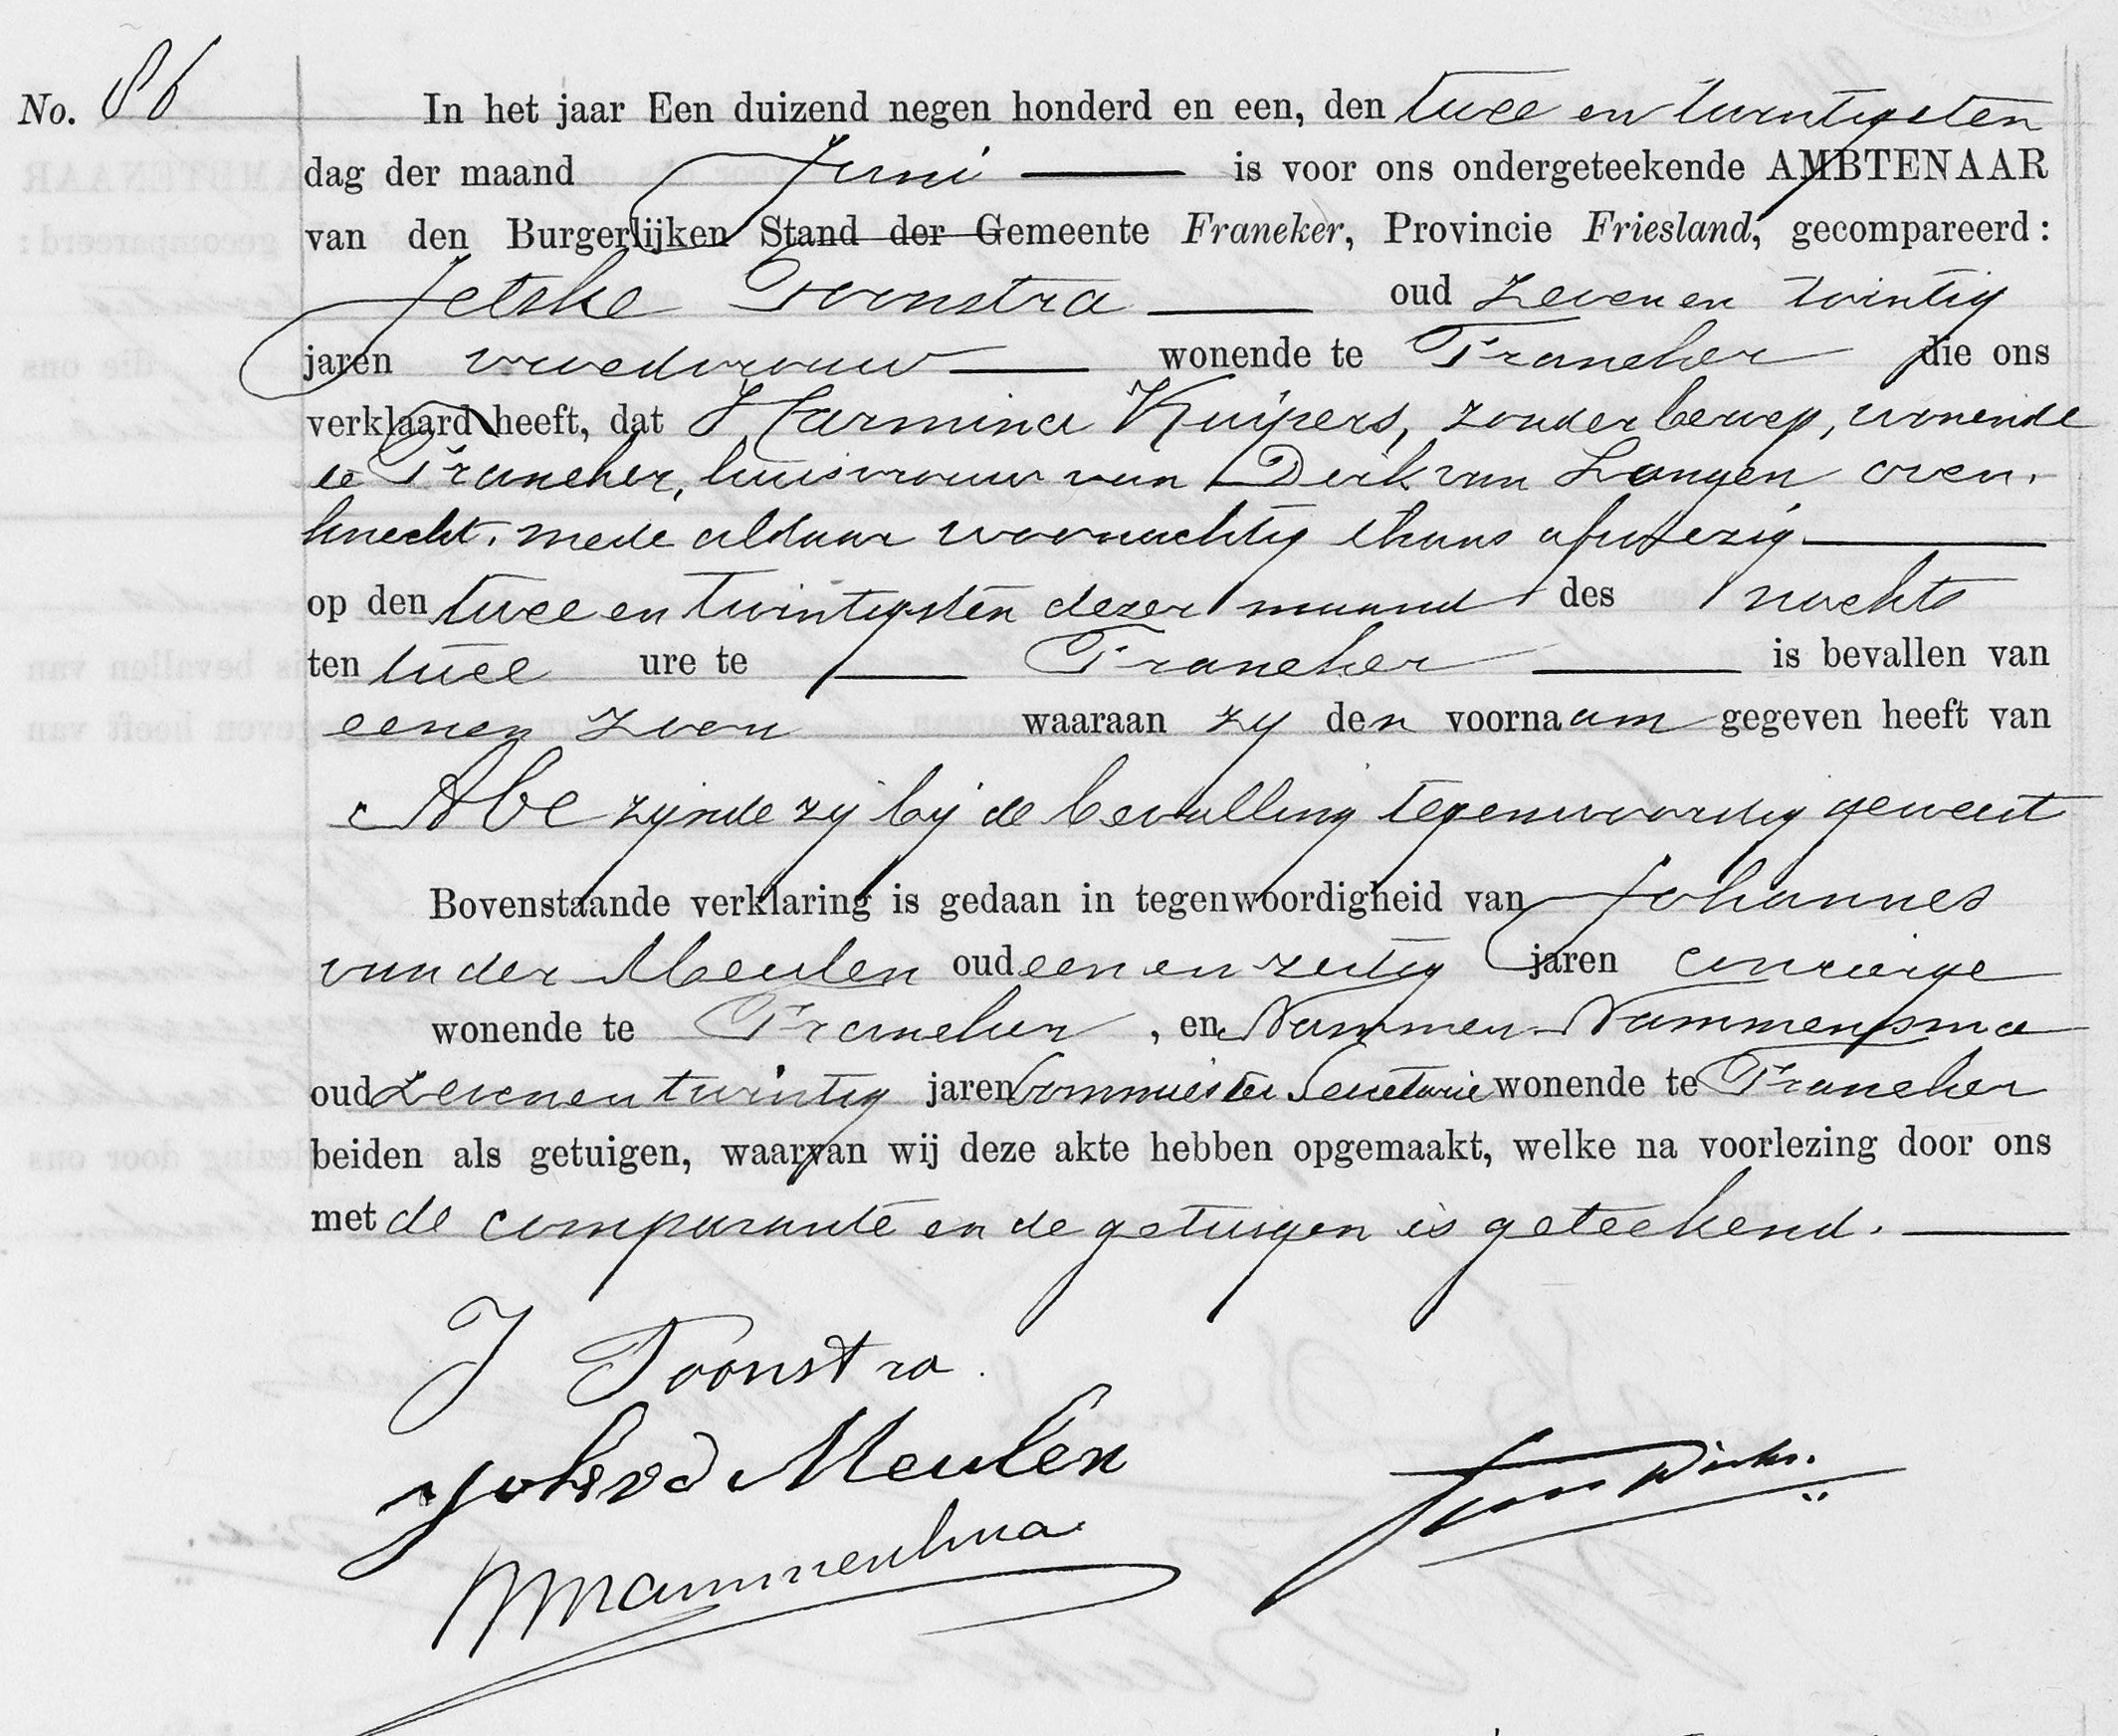 No. 86
In het jaar Een duizend negen honderd en een, den twee en twintigsten
dag der maand Juni is voor ons ondergeteekende AMBTENAAR
van den Burgerlijken Stand der Gemeente Franeker, Provincie Friesland, gecompareerd:
Jetske Toonstra oud zeven en twintig
jaren vroedvrouw wonende te Franeker die ons
verklaard heeft, dat Harmina Kuipers, zonder beroep, wonende
te Franeker, huisvrouw van Derk van Langen oven-
knecht, mede aldaar woonachtig thans afwezig
op den twee en twintigsten dezer maand des nachts
ten twee ure te Franeker is bevallen van
eenen zoon waaraan zy den voornaam gegeven heeft van
Abe zijnde zij bij de bevalling tegenwoordig geweest
Bovenstaande verklaring is gedaan in tegenwoordigheid van Johannes
van der Meulen oud een en zestig jaren concierge
wonende te Franeker, en Nammen Nammensma
oud zeven en twintig jaren Commies ter Secretarie wonende te Franeker
beiden als getuigen, waarvan wij deze akte hebben opgemaakt, welke na voorlezing door ons
met de comparante en de getuigen is geteekend.
J Toonstra.
Johs vd Meulen
NNammensma